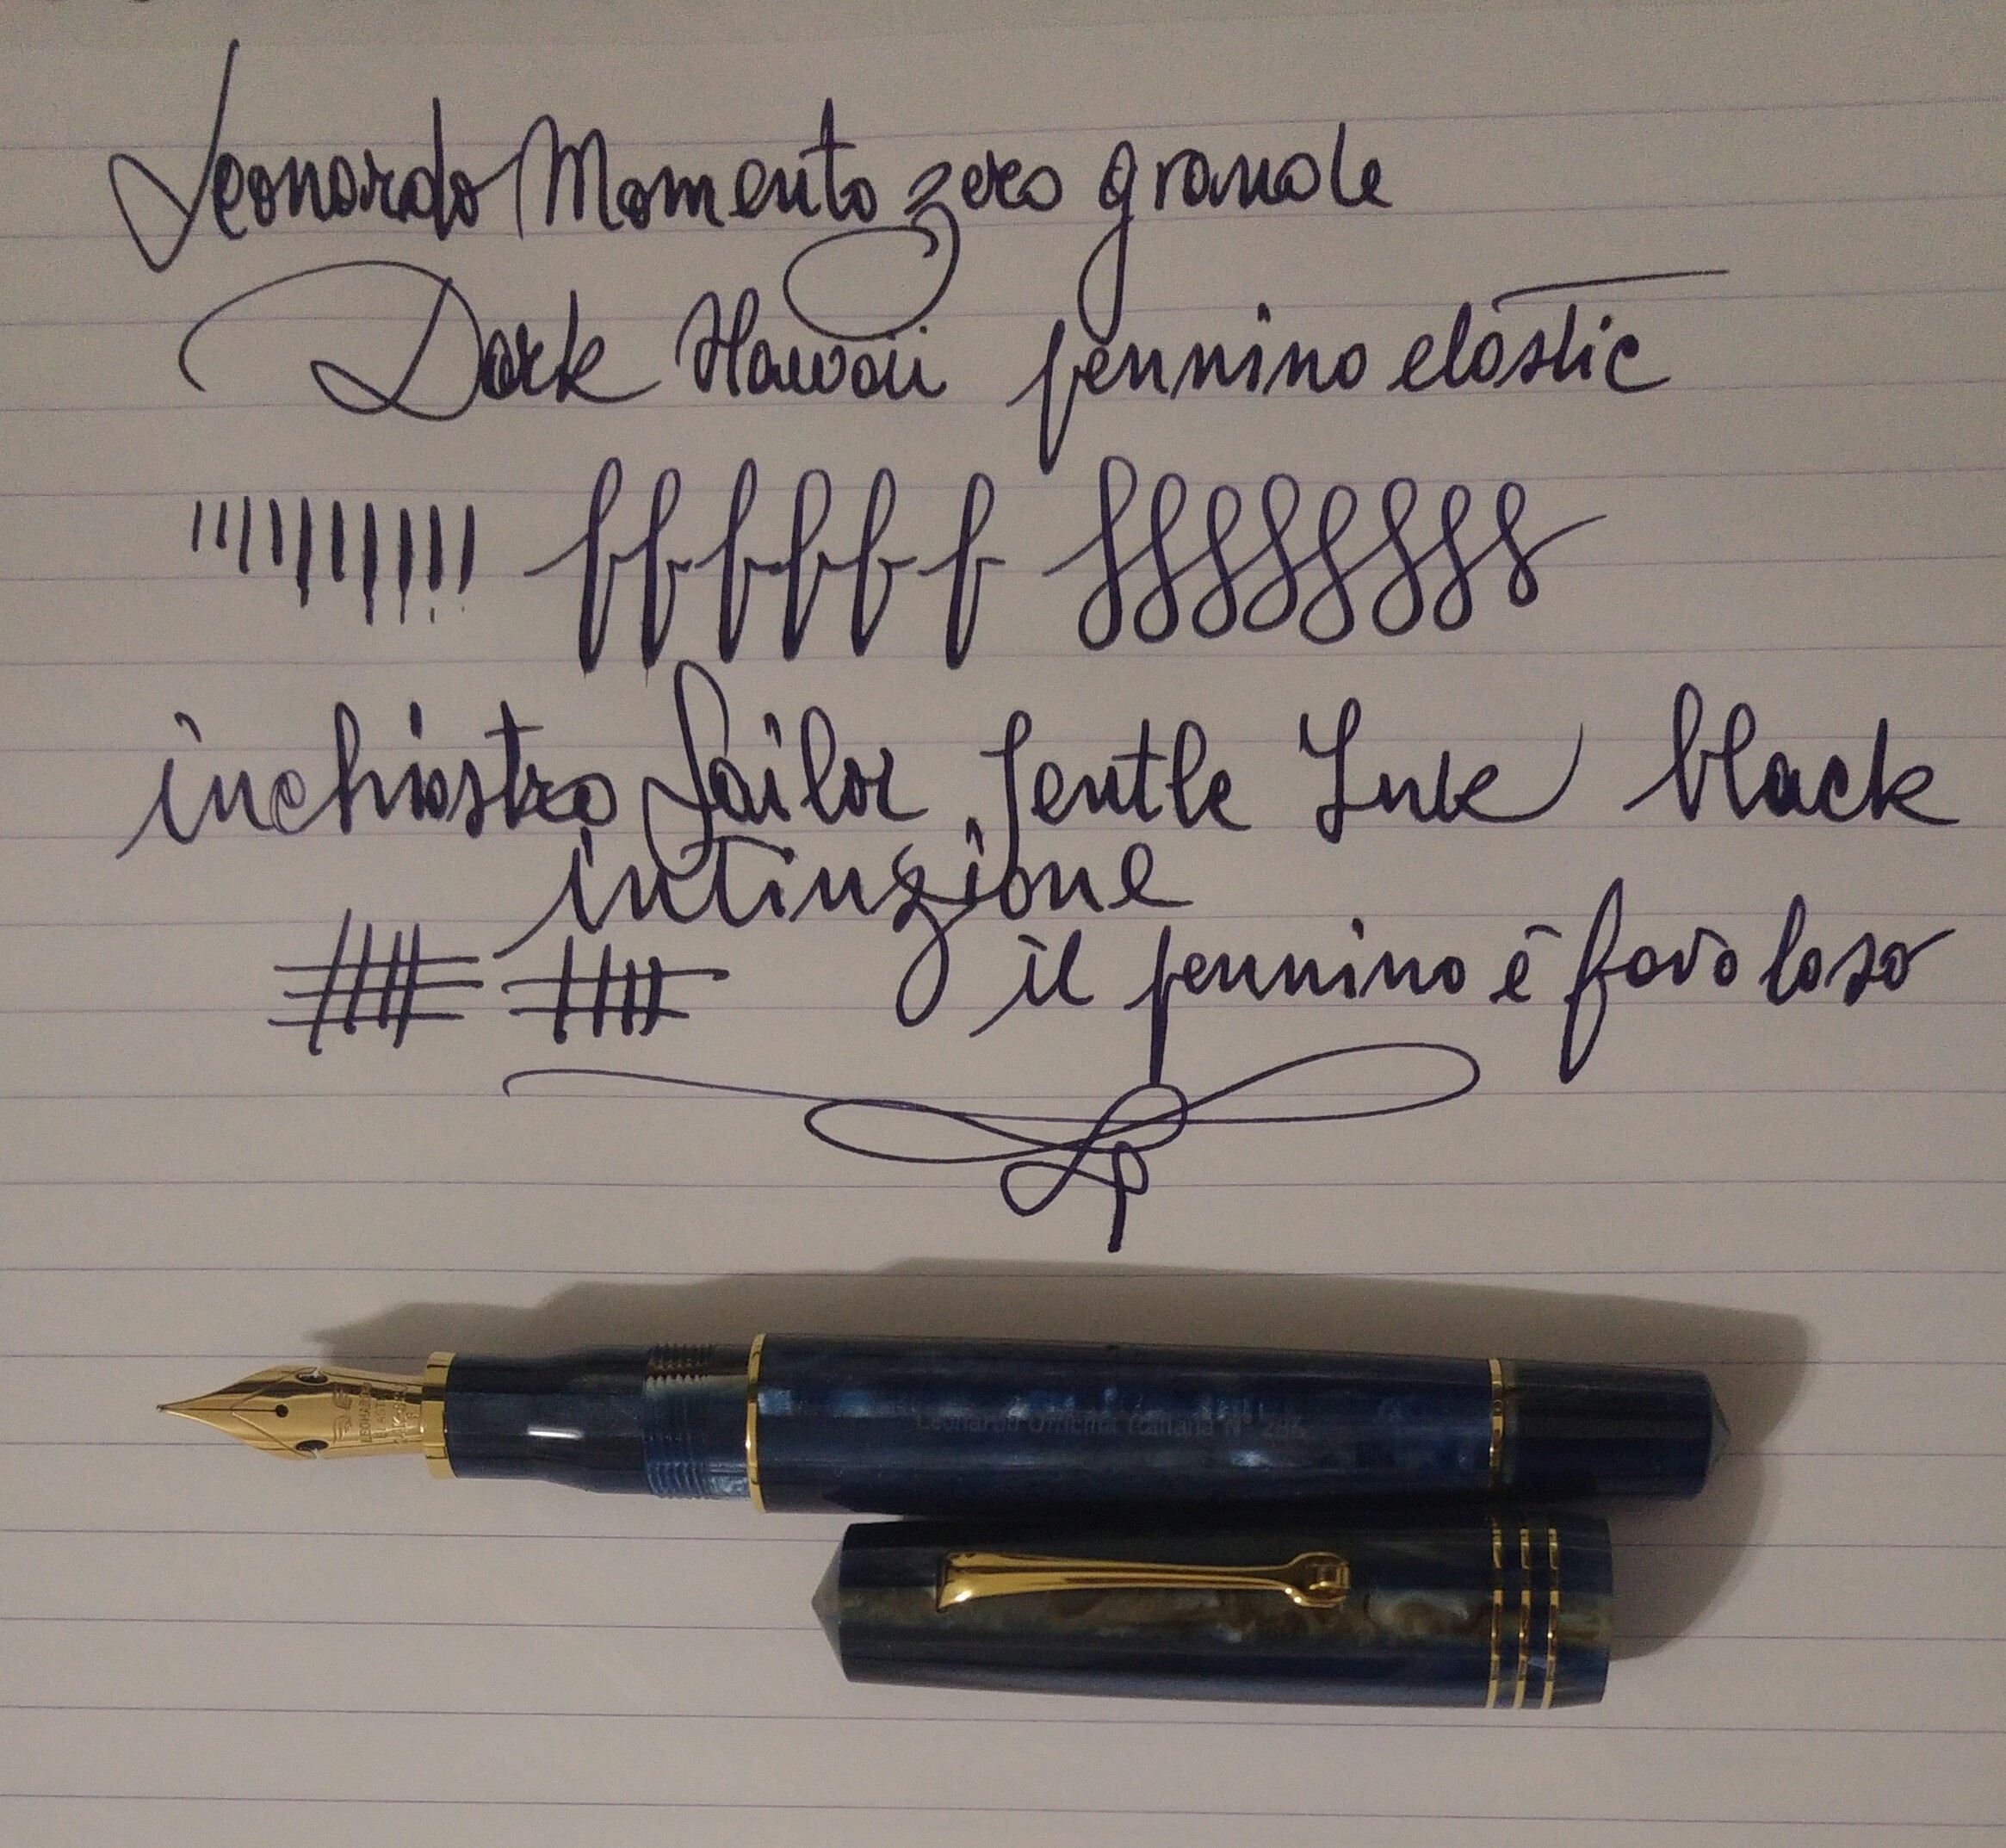 Leonardo Momento zero grande
Dark Hawaii pennino elastic
inchiostro Sailor Jentle Ink black
intinzione
il pennino è favoloso
LEONARDO
Leonardo Officina Italiana N°